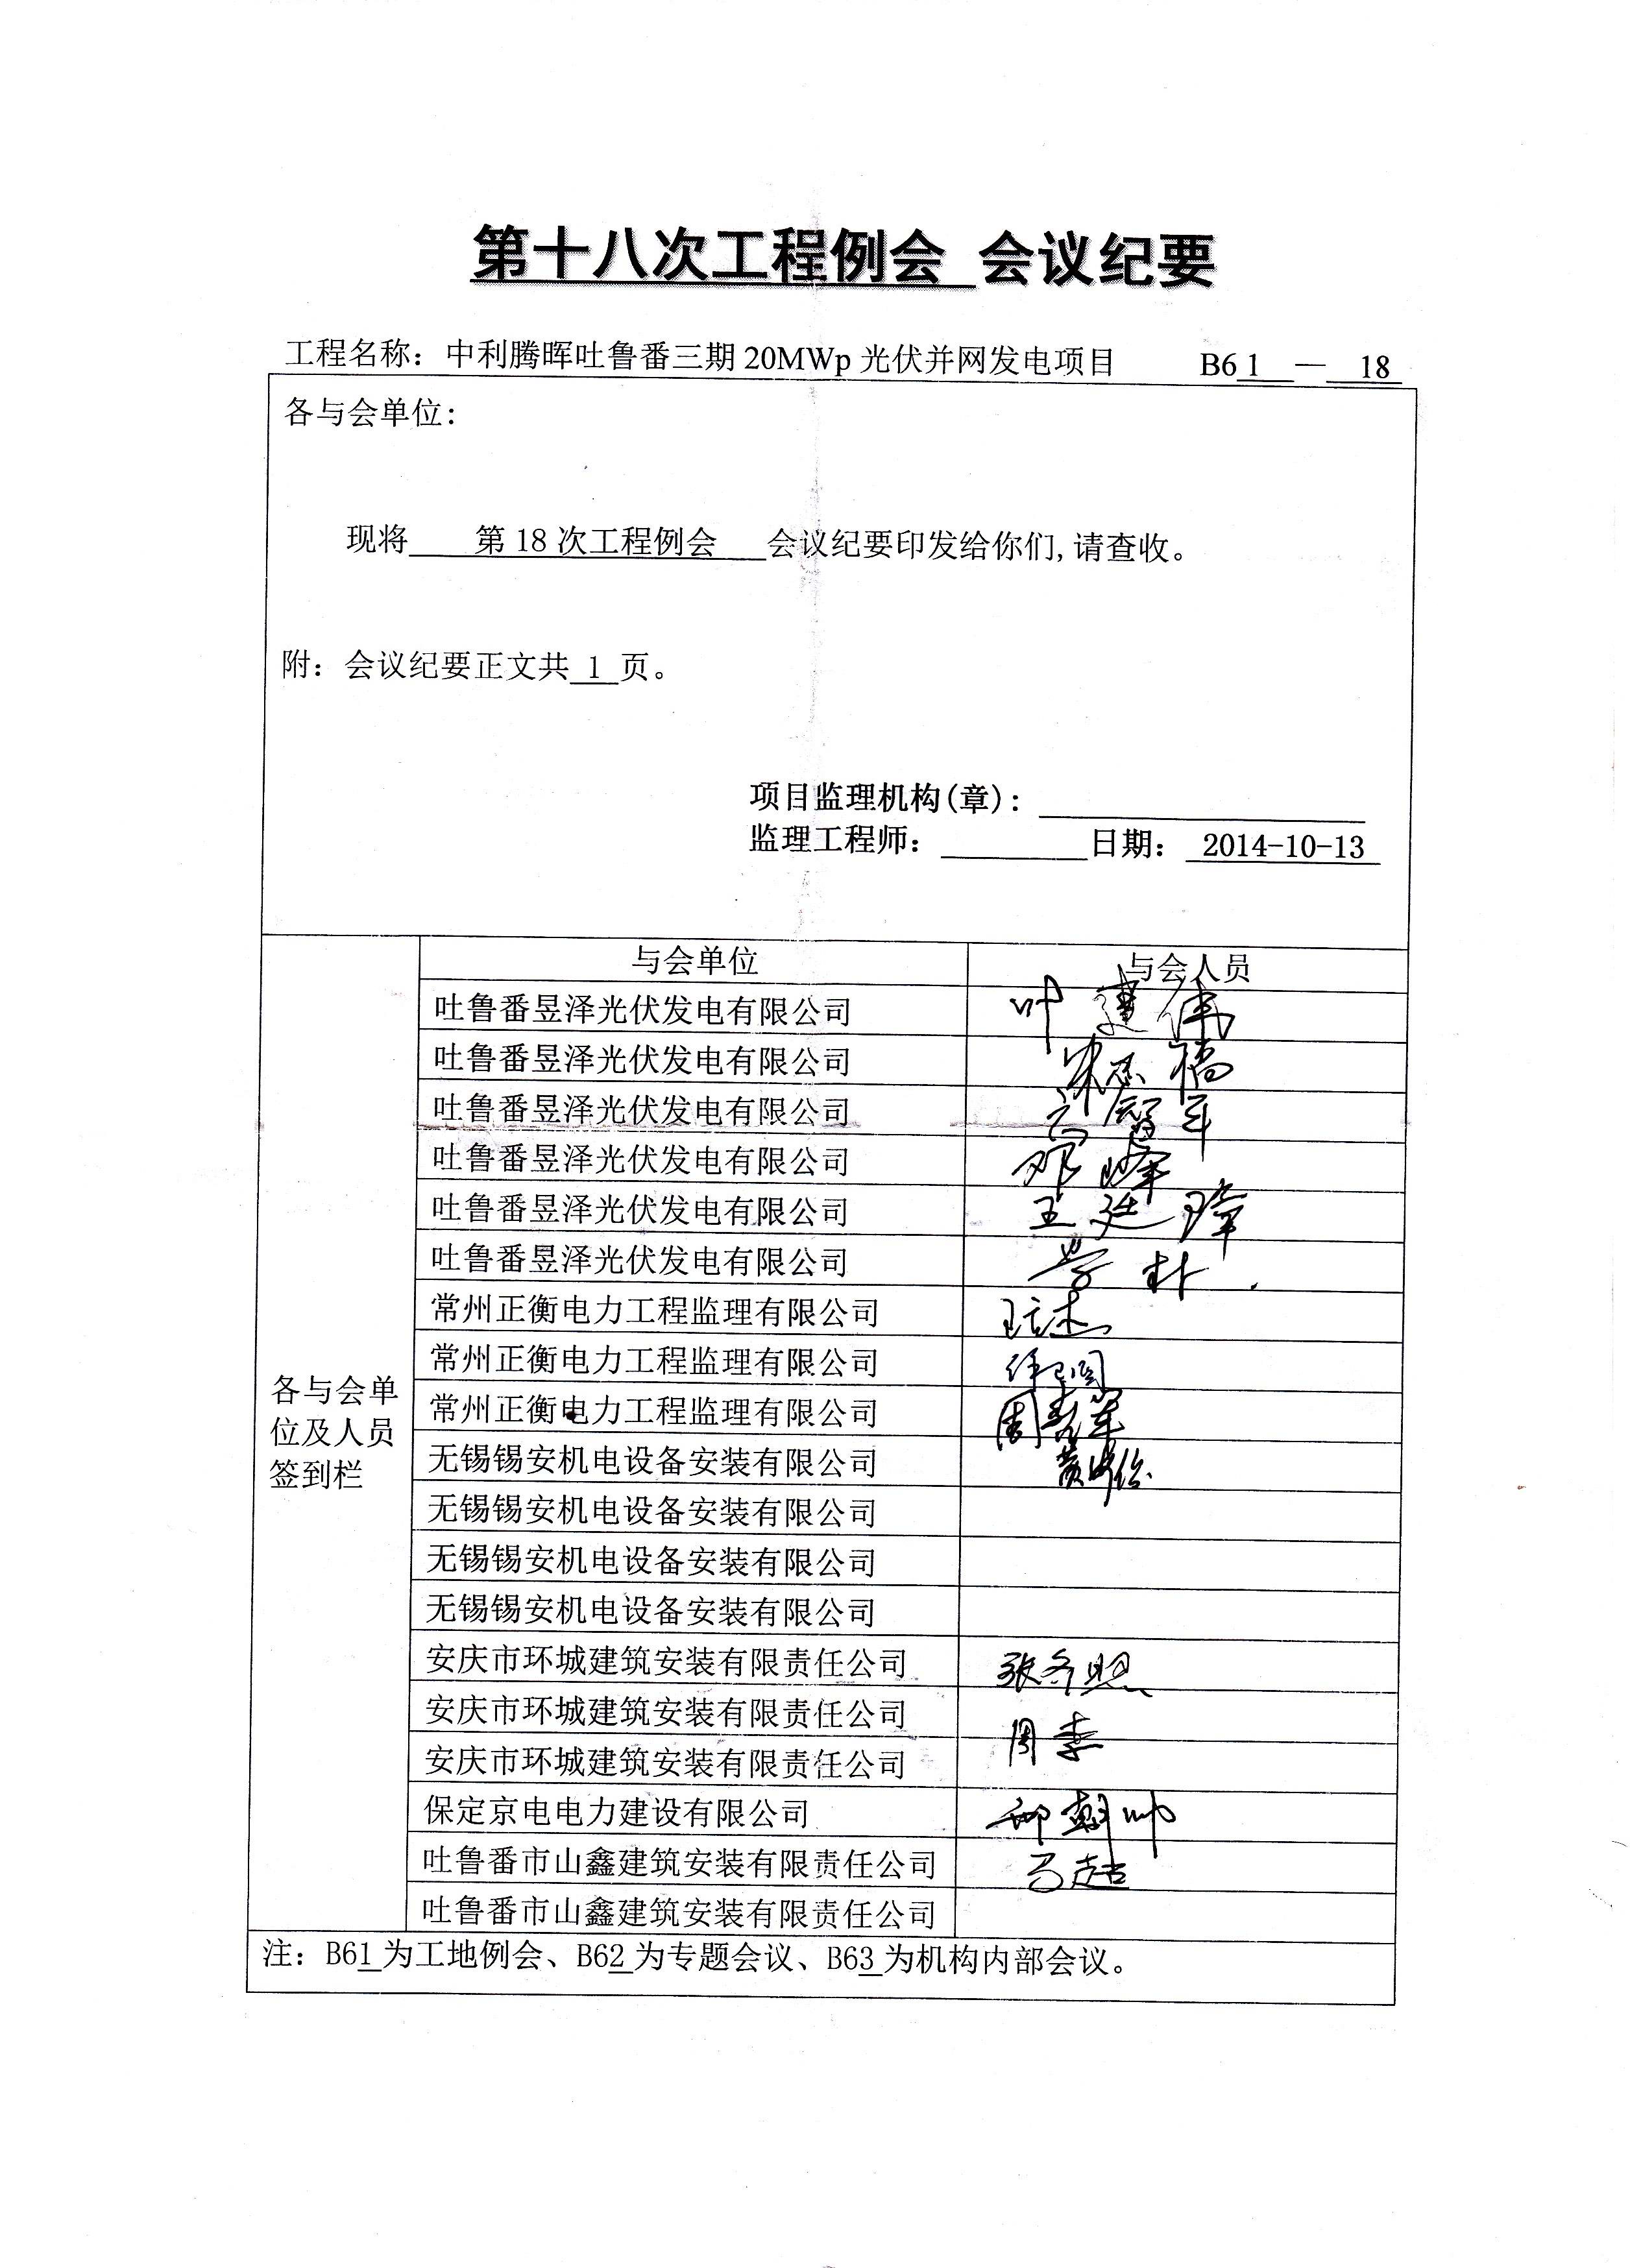 第十八次工程例会 会议纪要
工程名称：中利腾晖吐鲁番三期20MWp光伏并网发电项目 B61 — 18
各与会单位：
现将 第18次工程例会 会议纪要印发给你们,请查收。
附：会议纪要正文共 1 页。
项目监理机构(章)：
监理工程师： 日期： 2014-10-13
各与会单位及人员签到栏
与会单位 与会人员
吐鲁番昱泽光伏发电有限公司 叶建伟
吐鲁番昱泽光伏发电有限公司
吐鲁番昱泽光伏发电有限公司
吐鲁番昱泽光伏发电有限公司 邓峰
吐鲁番昱泽光伏发电有限公司 王廷璋
吐鲁番昱泽光伏发电有限公司
常州正衡电力工程监理有限公司
常州正衡电力工程监理有限公司
常州正衡电力工程监理有限公司
无锡锡安机电设备安装有限公司
无锡锡安机电设备安装有限公司
无锡锡安机电设备安装有限公司
无锡锡安机电设备安装有限公司
安庆市环城建筑安装有限责任公司
安庆市环城建筑安装有限责任公司 周季
安庆市环城建筑安装有限责任公司
保定京电电力建设有限公司
吐鲁番市山鑫建筑安装有限责任公司 马超
吐鲁番市山鑫建筑安装有限责任公司
注：B61为工地例会、B62为专题会议、B63为机构内部会议。